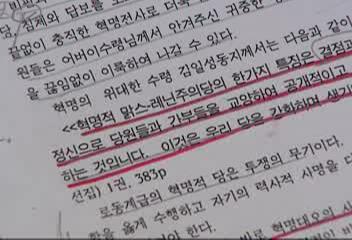 당, 김제와 담보를 모
끝없이 충직한 혁명전사로 더욱
원들은 어버이수령님께서 안겨주신 귀중한
을 끊임없이 이룩하여 나갈 수 있다.
혁명의 위대한 수령 김일성동지께서는 다음과 같이
<<혁명적 맑스-레닌주의당의 한가지 특징은 결점과
정신으로 당원들과 간부들을 교양하여 공개적이고
하는 것입니다. 이것은 우리 당을 강화하며 생기
선집) 1권, 383p
로동계급의 혁명적 당은 투쟁의 무기이다.
할을 옳게 수행하고 자기의 력사적 사명을 다
여야 한다.
바로 혁명대오의 사